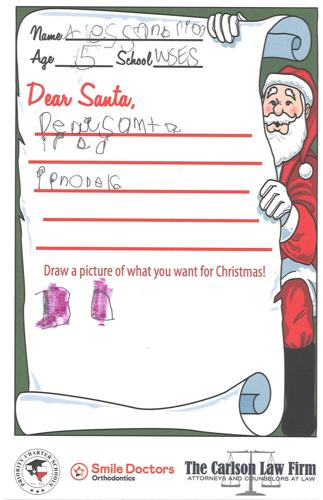 Name Alessandrro
Age 5 School WSES
Dear Santa,
Dear Santa
IPad
Draw a picture of what you want for Christmas!
PRIORITY CHARTER SCHOOLS
Smile Doctors
Orthodontics
The Carlson Law Firm
ATTORNEYS AND COUNSELORS AT LAW